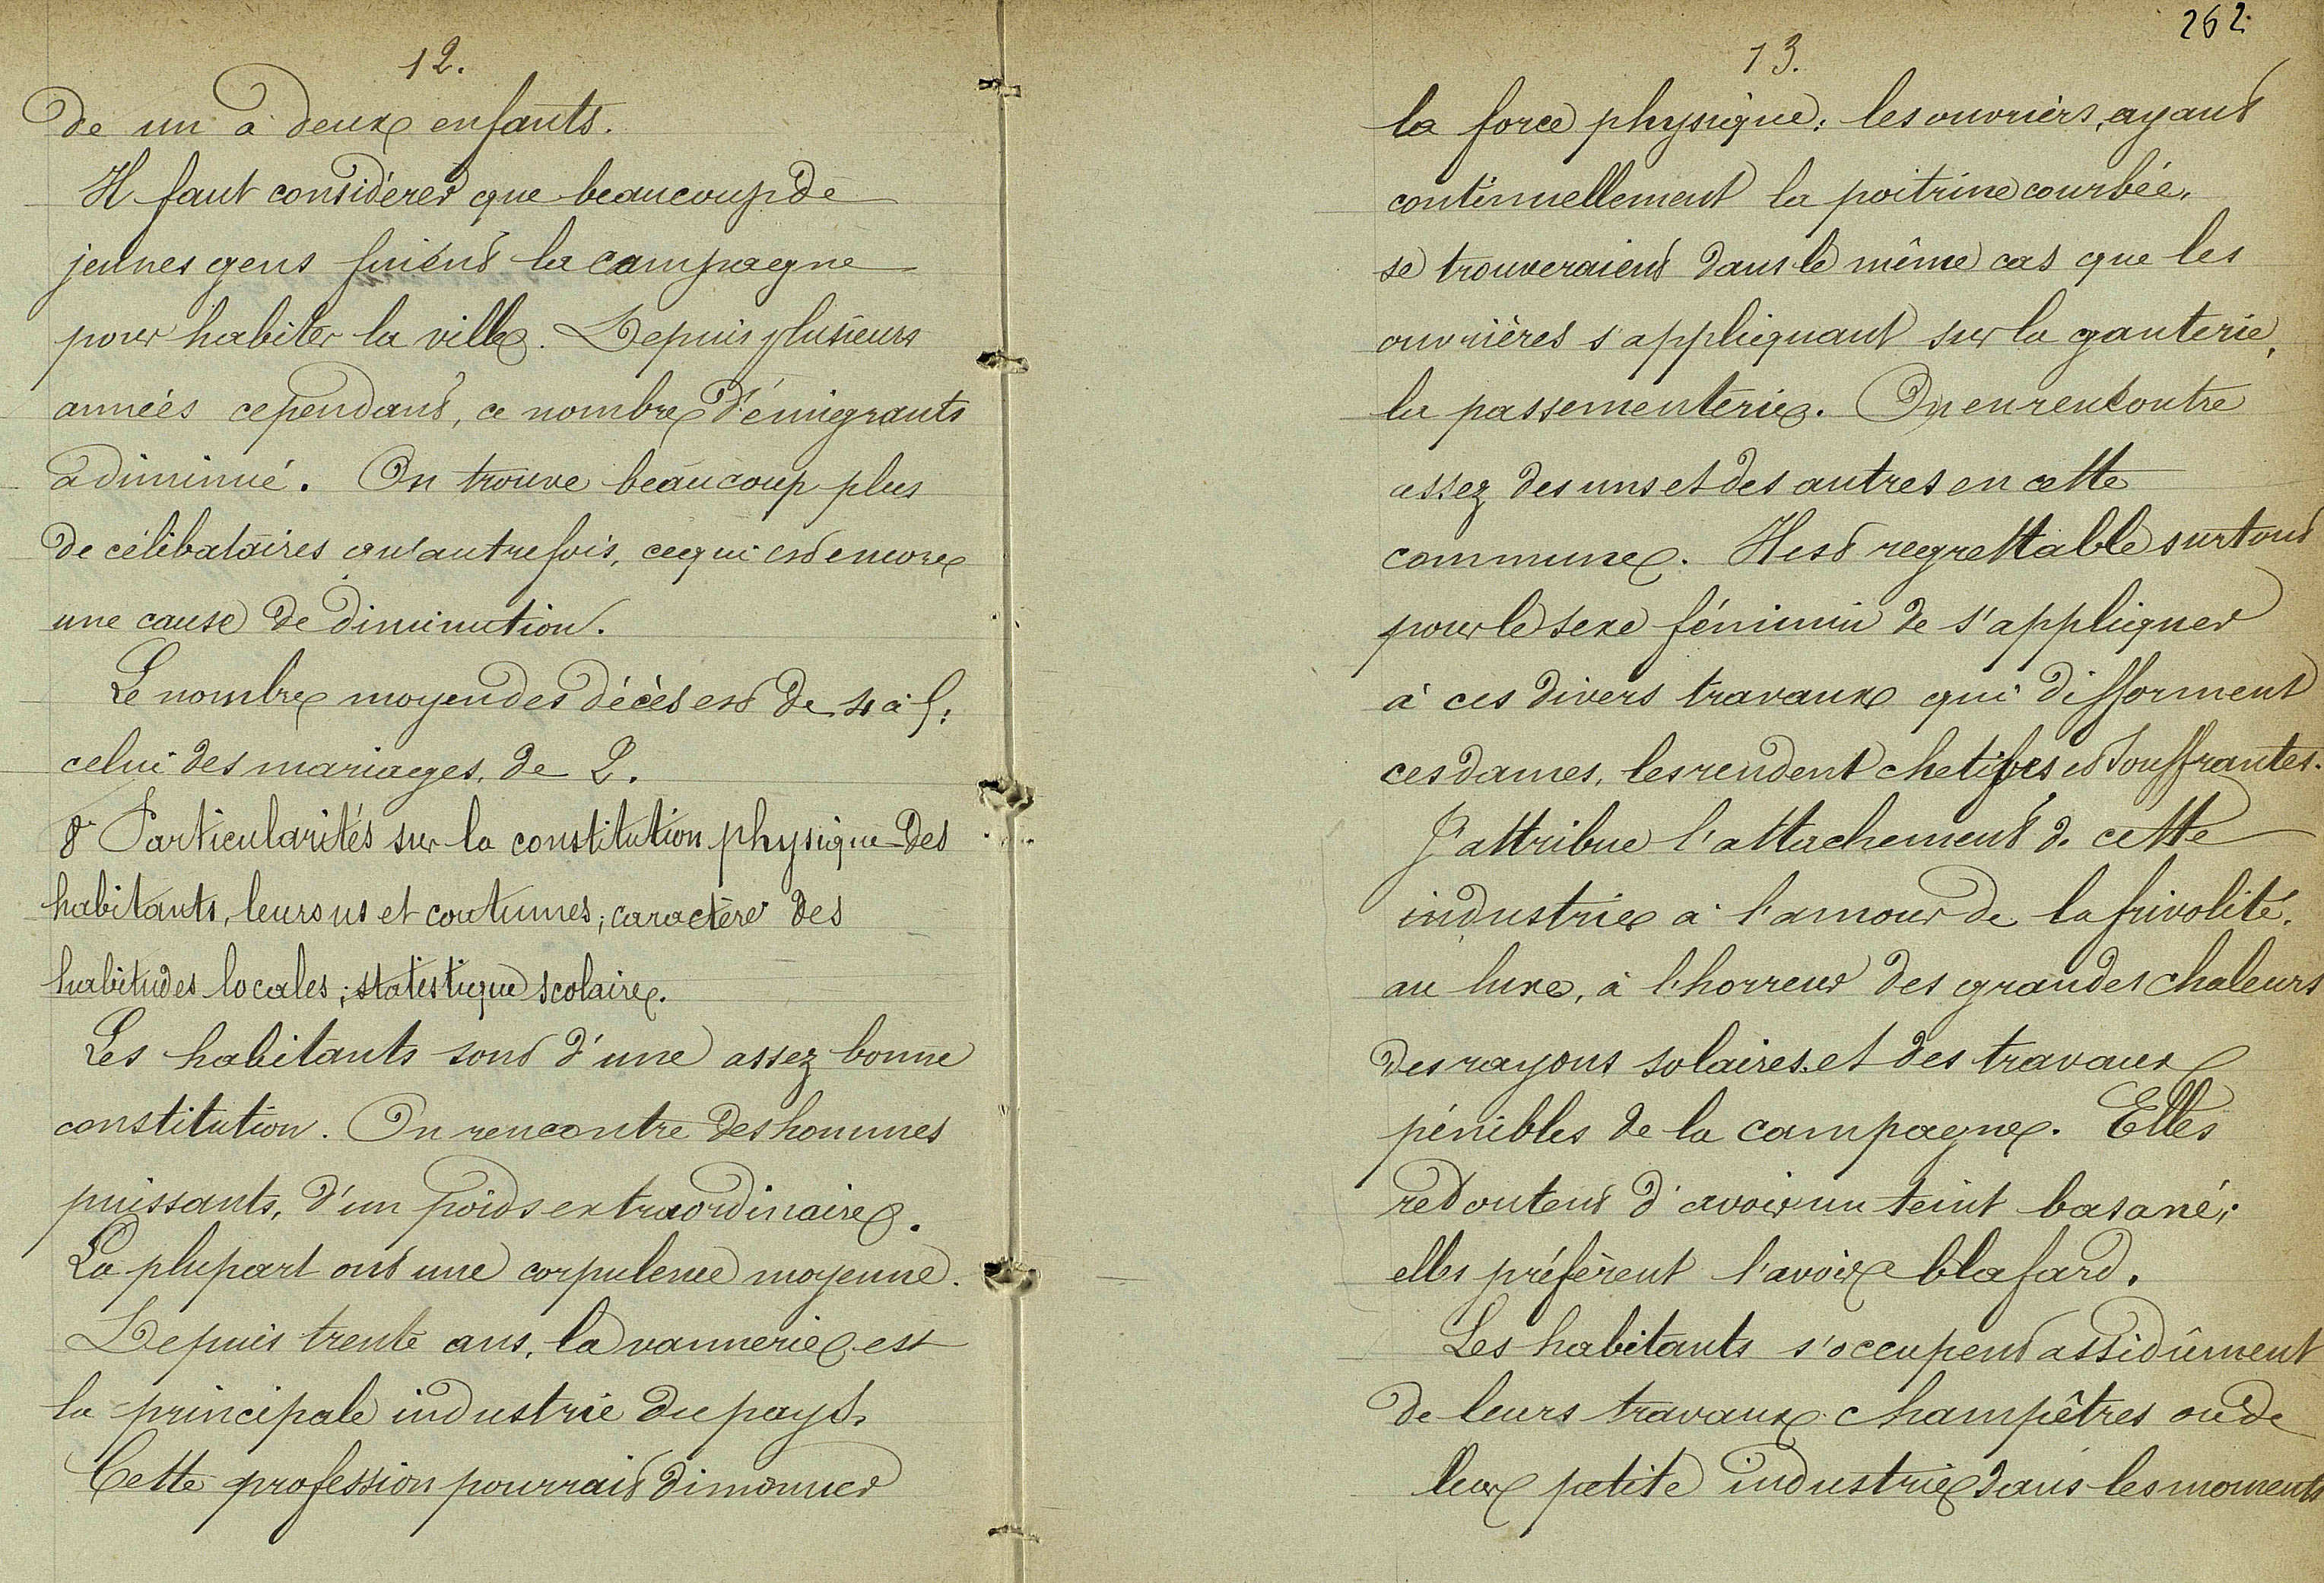 12.
de un à deux enfants.
Il faut considérer que beaucoup de
jeunes gens fuient la campagne
pour habiter la ville. Depuis plusieurs
années cependant, ce nombre d'émigrants
a diminué. On trouve beaucoup plus
de célibataires qu'autrefois, ce qui est encore
une cause de diminution.
Le nombre moyen des décès est de 4 à 5;
celui des mariages, de 2.
8° Particularités sur la constitution physique des
habitants, leurs us et coutumes; caractère des
habitudes locales; statistique scolaire.
Les habitants sont d'une assez bonne
constitution. On rencontre des hommes
puissants, d'un poids extraordinaire.
La plupart ont une corpulence moyenne.
Depuis trente ans, la vannerie est
la principale industrie du pays.
Cette profession pourrait diminuer
262
13.
la force physique: les ouvriers, ayant
continuellement la poitrine courbée,
se trouveraient dans le même cas que les
ouvrières s'appliquant sur la ganterie,
la passementerie. On en rencontre
assez des uns et des autres en cette
commune. Il est regrettable surtout
pour le sexe féminin de s'appliquer
à ces divers travaux qui difforment
ces dames, les rendent chetives et souffrantes.
J'attribue l'attachement de cette
industrie à l'amour de la frivolité,
au luxe, à l'horreur des grandes chaleurs
des rayons solaires et des travaux
pénibles de la campagne. Elles
redoutent d'avoir un teint basané;
elles préfèrent l'avoir blafard.
Les habitants s'occupent assidûment
de leurs travaux champêtres ou de
leur petite industrie dans les moments